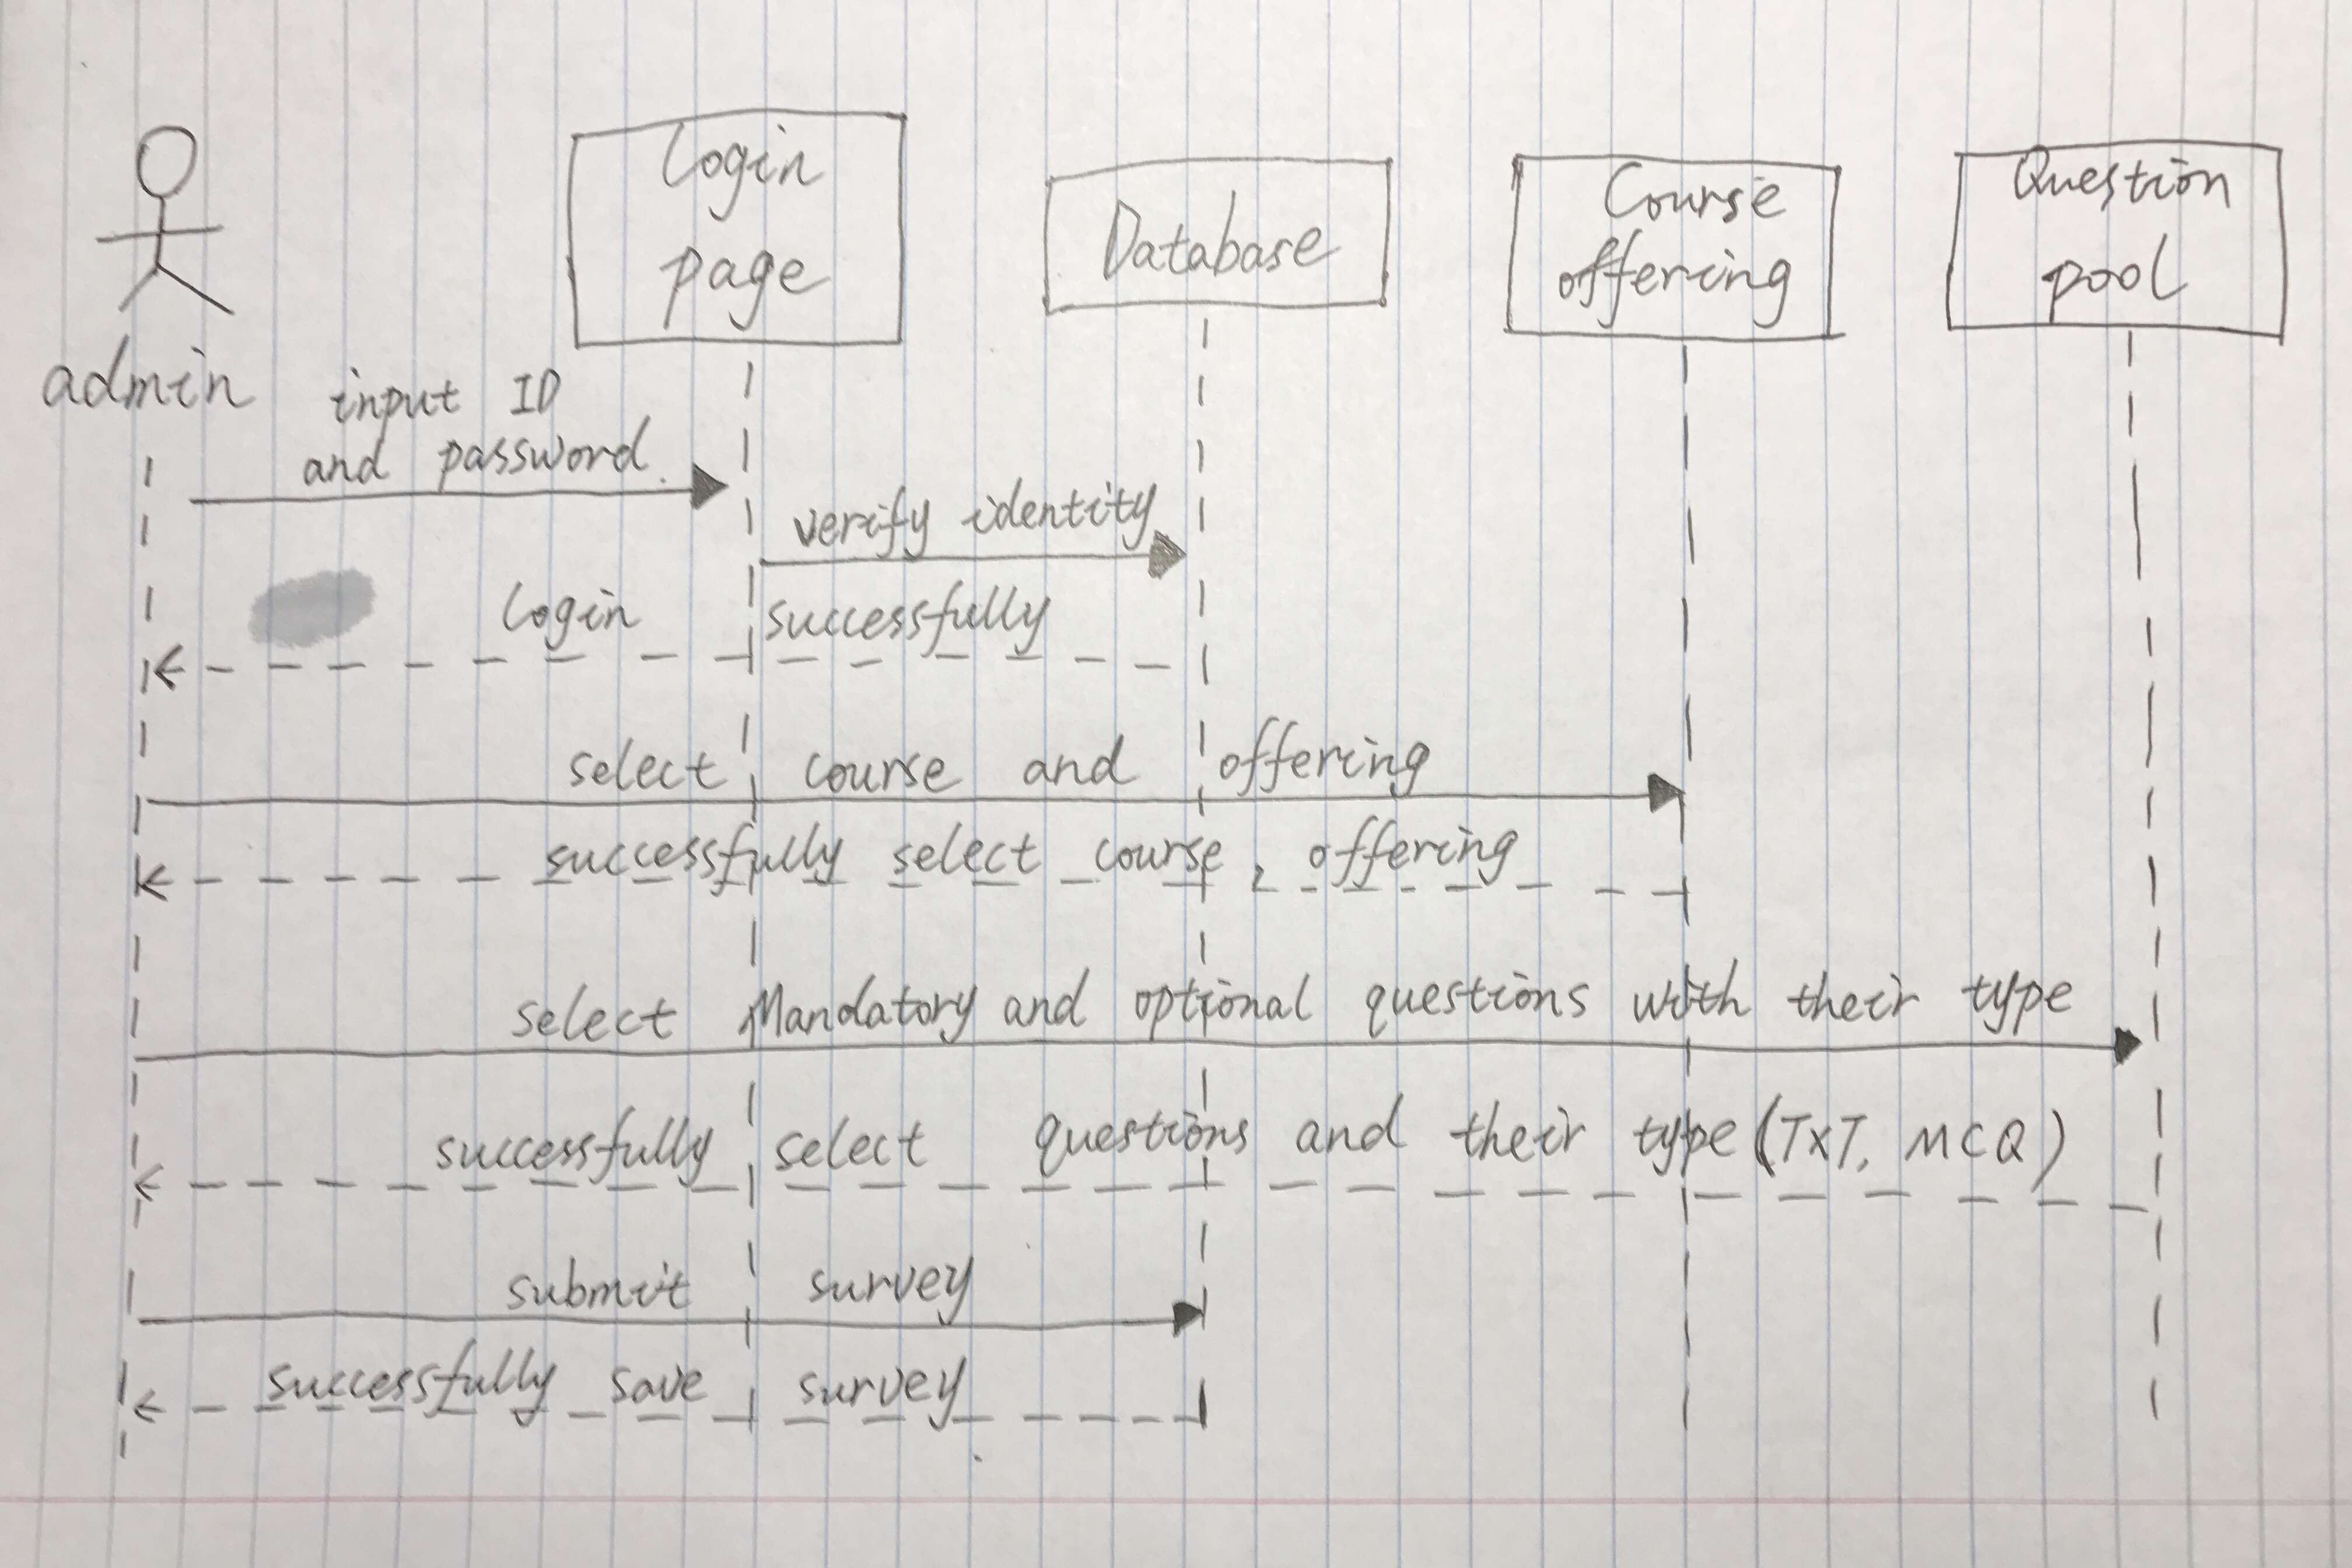 Login
page
Database
Course
offering
Question
pool
admin
input ID
and password.
verify identity
Login successfully
select course and offering
successfully select course, offering
select Mandatory and optional questions with their type
successfully select questions and their type (TXT, MCQ)
submit survey
successfully save survey